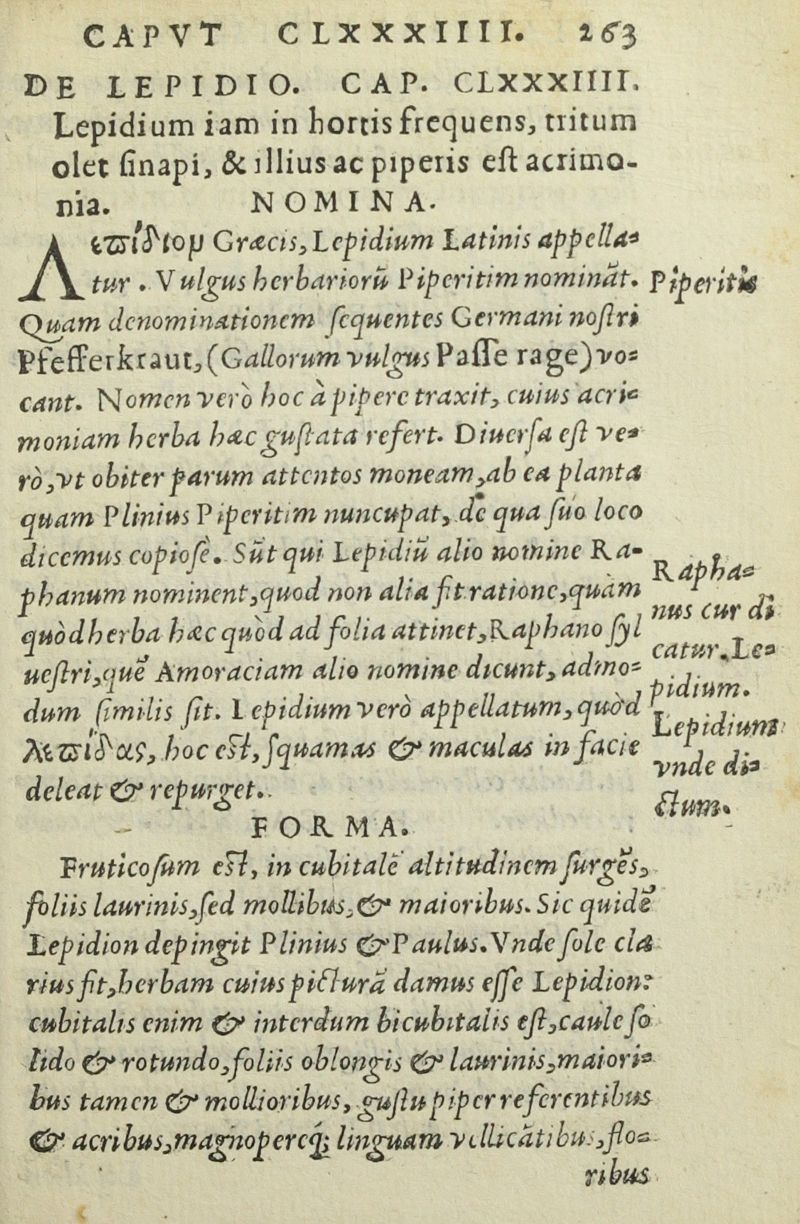 CAPVT CLXXXIIII. 263
DE LEPIDIO. CAP. CLXXXIIII.
Lepidium iam in hortis frequens, tritum
olet ſinapi, & illius ac piperis eſt acrimo-
nia. NOMINA.
Λεπίδιον Græcis, Lepidium Latinis appella-
tur. Vulgus herbariorū Piperitim nominăt.
Quam denominationem ſequentes Germani noſtri
Pfefferkraut, (Gallorum vulgus Paſſe rage) vo-
cant. Nomen verò hoc à pipere traxit, cuius acri-
moniam herba hæc guſtata refert. Diuerſa eſt ve-
rò, vt obiter parum attentos moneam, ab ea planta
quam Plinius Piperitim nuncupat, de qua ſuo loco
dicemus copioſè. Sūt qui Lepidiū alio nomine Ra-
phanum nominent, quod non alia fit ratione, quàm
quòd herba hæc quòd ad folia attinet, Raphano ſyl
ueſtri, quē Amoraciam alio nomine dicunt, admo-
dum ſimilis ſit. Lepidium verò appellatum, quòd
λεπίδας, hoc eſt, ſquamas & maculas in facie
deleat & repurget.
Piperitis
Rapha-
nus cur di
catur. Le-
pidium.
Lepidium
vnde di-
ctum.
FORMA.
Fruticoſum eſt, in cubitalē altitudinem ſurgēs,
foliis laurinis, ſed mollibus, & maioribus. Sic quidē
Lepidion depingit Plinius & Paulus. Vnde ſole cla
rius fit, herbam cuius picturā damus eſſe Lepidion:
cubitalis enim & interdum bicubitalis eſt, caule ſo
lido & rotundo, foliis oblongis & laurinis, maiori-
bus tamen & mollioribus, guſtu piper referentibus
& acribus, magnopereq́; linguam vellicātibus, flo-
ribus